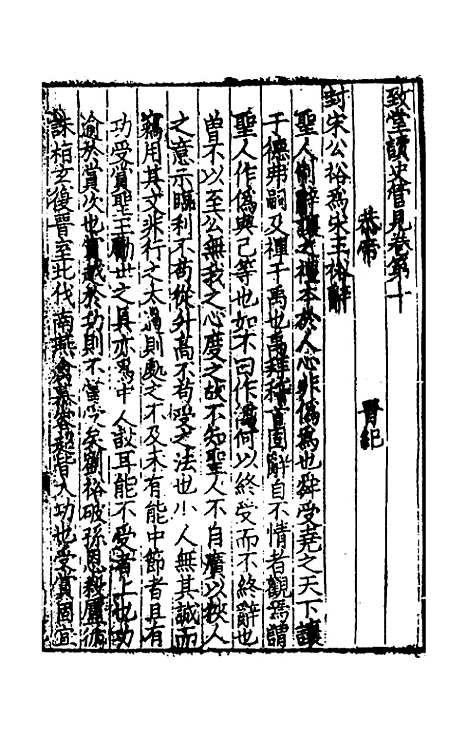 致堂讀史管見卷第十
恭帝 晉紀
封宋公裕為宋王裕辭
聖人制辭讓之禮本於人心非偽為也舜受堯之天下讓
于德弗嗣及禪于禹也禹拜稽首固辭自不情者觀焉謂
聖人作偽與己等也如不曰作偽何以終受而不終辭也
曽不以至公無我之心度之故不知聖人不自廣以狹人
之意示臨利不苟從升高不苟受之法也小人無其誠而
竊用其文非行之太過則處之不及未有能中節者且有
功受賞聖王勵世之具亦為中人設耳能不受者上也功
逾於賞次也賞越於功則不僅今矣劉裕破孫恩殺盧循
誅桓玄復晉至北伐南燕禽慕容超皆大功也受賞固宜